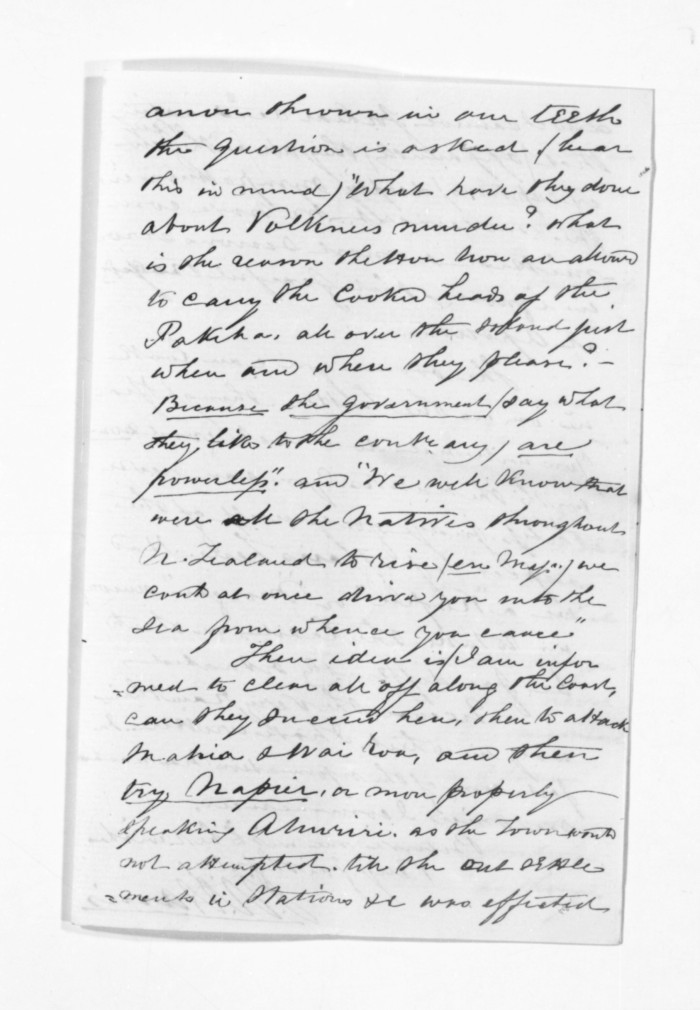 anon thrown in our teeth
the question is asked (bear
this in mind) "What have they done
about Volkners murder? What
is the reason the Hau Hau are allowed
to carry the Cooked heads of the
Pakeha, all over the Island just
when and where they please? –
Because the government (say what
they like to the contrary) are
powerless". and "We well know that
were all the Natives throughout
N. Zealand to rise (en Mass) we
could at once drive you into the
Sea from whence you came"
Their idea is (I am infor
=med to clear all off along the Coast,
can they succeed here, then to attack
Mahia & Wairoa, and then
try Napier, or more properly
speaking Ahuriri. as the Town would
not attempted. till the out settle
=ments in Stations &c was effected